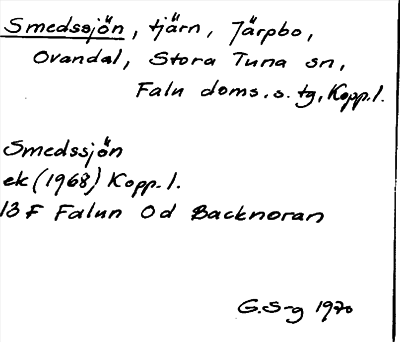 Smedssjön, tjärn, Järpbo,
Ovandal, Stora Tuna sn,
Falu doms.s. tg, Kopp.l.
Smedssjön
ek (1968) Kopp.l.
13 F Falun 0d Backnoran
G.S-g 1970